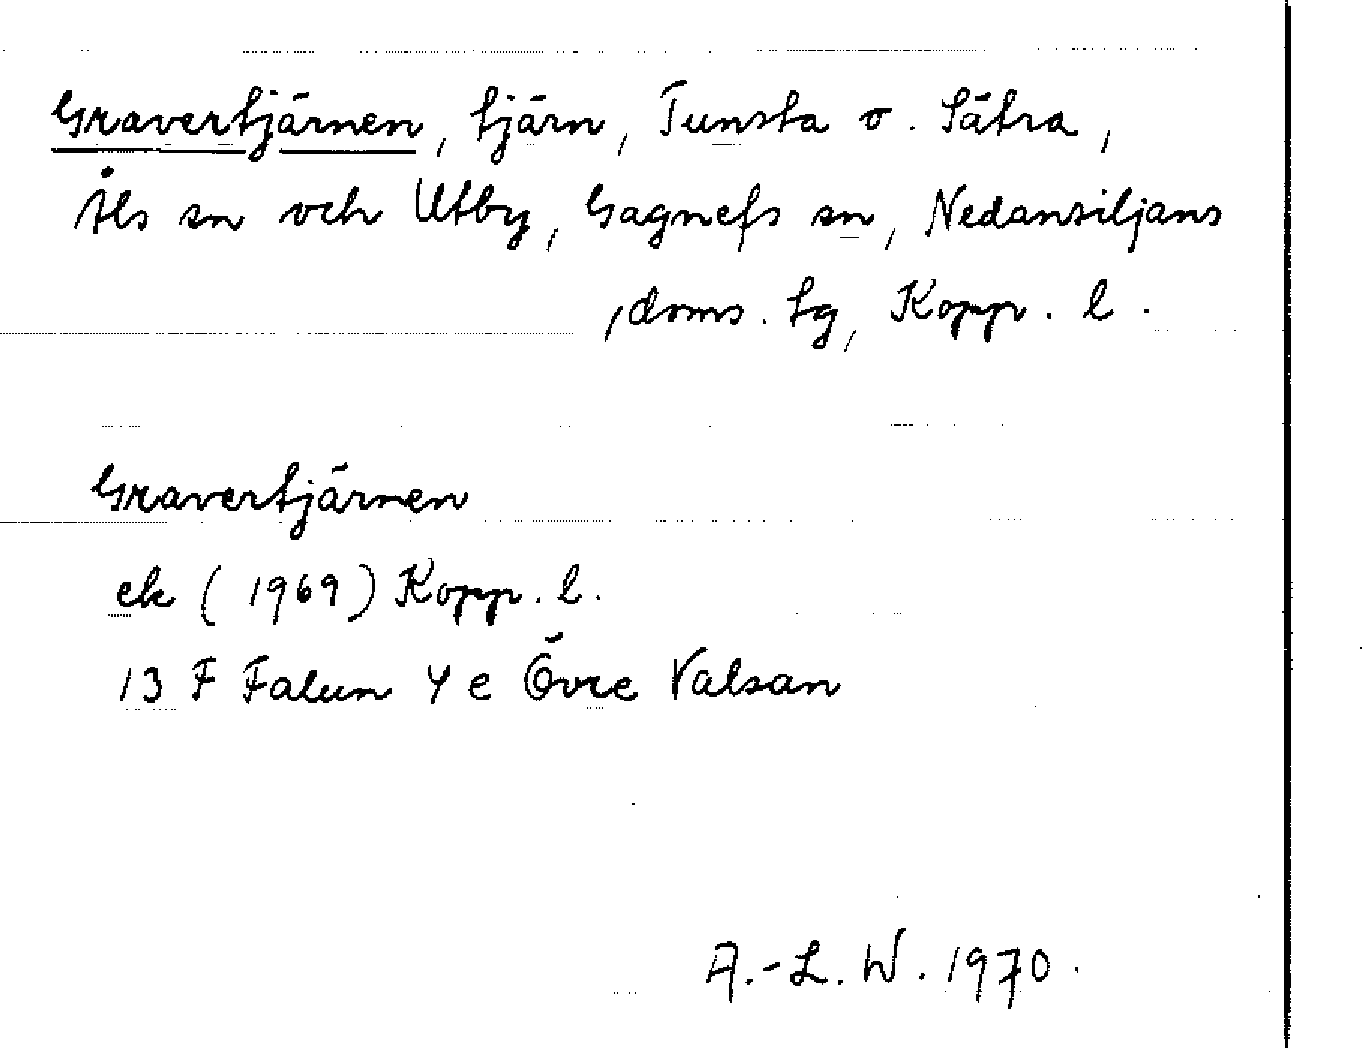 Gravertjärnen, tjärn, Tunsta o. Sätra,
Åls sn och Utby, Gagnefs sn, Nedansiljans
doms. tg, Kopp. l.
Gravertjärnen
ek (1969) Kopp. l.
13 F Falun 4 e Övre Valsan
A.-L. W. 1970.